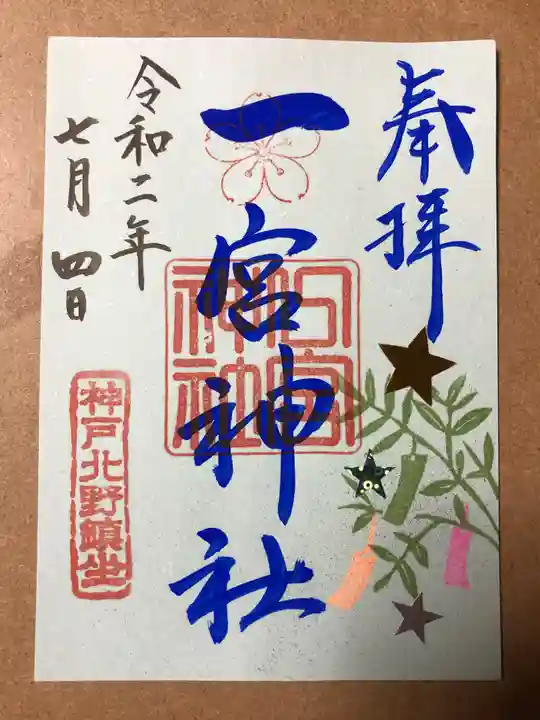 奉拝
一宮神社
一宮神社
令和二年
七月四日
神戸北野鎮坐